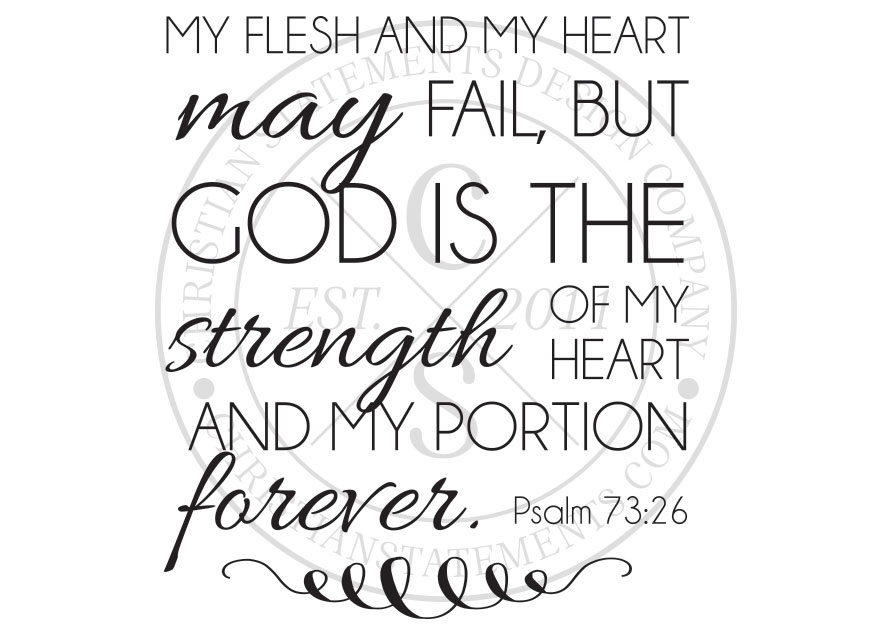 MY FLESH AND MY HEART
may FAIL, BUT
GOD IS THE
strength OF MY
HEART
AND MY PORTION
forever. Psalm 73:26
CHRISTIAN STATEMENTS DESIGN COMPANY
C
EST. 2011
S
CHRISTIANSTATEMENTS.COM